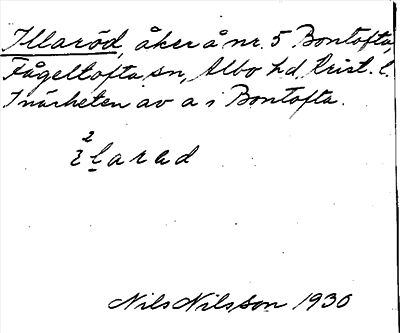 Illaröd, åker å nr. 5 Bontofta,
Fågeltofta sn, Albo hd, Krist. l.
I närheten av a i Bontofta.
Nils Nilsson 1930